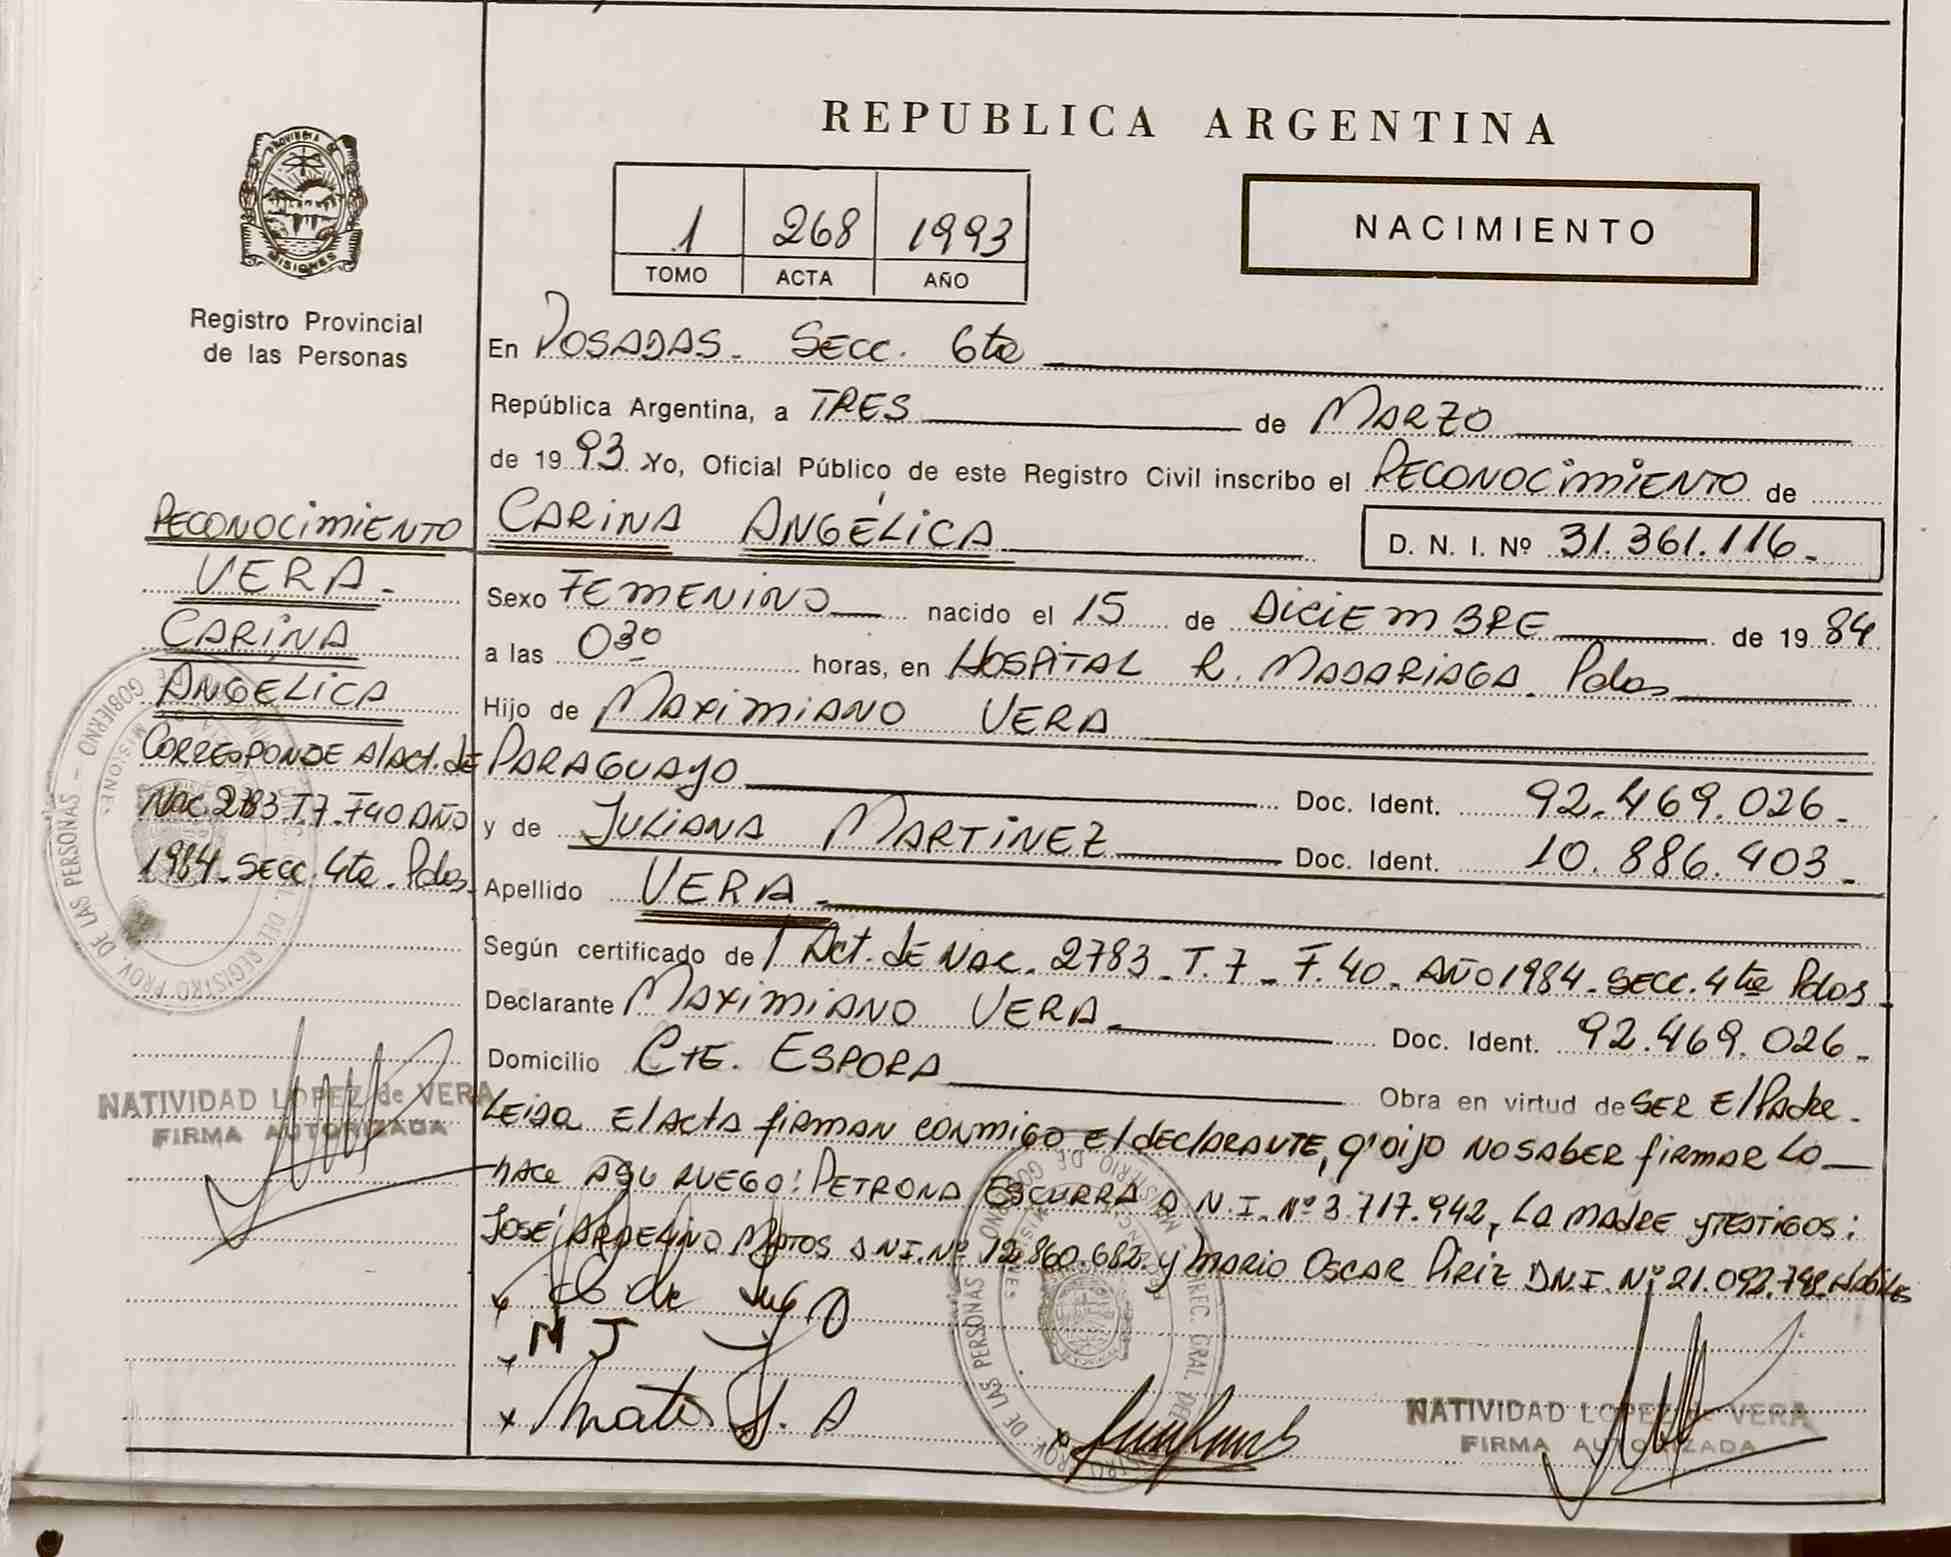 REPUBLICA ARGENTINA
PROVINCIA DE
MISIONES
Registro Provincial
de las Personas
1 268 1993
TOMO ACTA AÑO
NACIMIENTO
En POSADAS - SECC. 6ta
República Argentina, a TRES de MARZO
de 1993 Yo, Oficial Público de este Registro Civil inscribo el RECONOCIMIENTO de
CARINA ANGÉLICA D. N. I. Nº 31.361.116.-
Sexo FEMENINO nacido el 15 de DICIEMBRE de 1984
a las 03º horas, en HOSPITAL R. MADARIAGA. Pdas
Hijo de MAXIMIANO VERA
PARAGUAYO Doc. Ident. 92.469.026.-
y de JULIANA MARTINEZ Doc. Ident. 10.886.403.-
Apellido VERA.-
Según certificado de / Act. de NAC. 2783 - T. 7 - F. 40 - AÑO 1984 - SECC. 4ta Pdas.
Declarante MAXIMIANO VERA Doc. Ident. 92.469.026.-
Domicilio Cte. ESPORA Obra en virtud de SER El Padre.
LEIDA El ActA fiRMAN CONMIGO El dEClARANTE, q' DIJO NO SABER fiRMAR LO
HACE A SU RUEGO: PETRONA ESCURRA D.N.I. Nº 3.717.942, LA MADRE y TESTIGOS:
JOSÉ MATOS D.N.I. Nº 12.860.682 y MARIO OSCAR PIRIZ D.N.I. Nº
M J
RECONOCIMIENTO
VERA -
CARINA
ANGELICA
CORRESPONDE A/Act. de
Nac. 2783 T.7 - F40 AÑO
1984 - SECC. 4ta - Pdas.
NATIVIDAD LOPEZ de VERA
FIRMA AUTORIZADA
NATIVIDAD LOPEZ de VERA
FIRMA AUTORIZADA